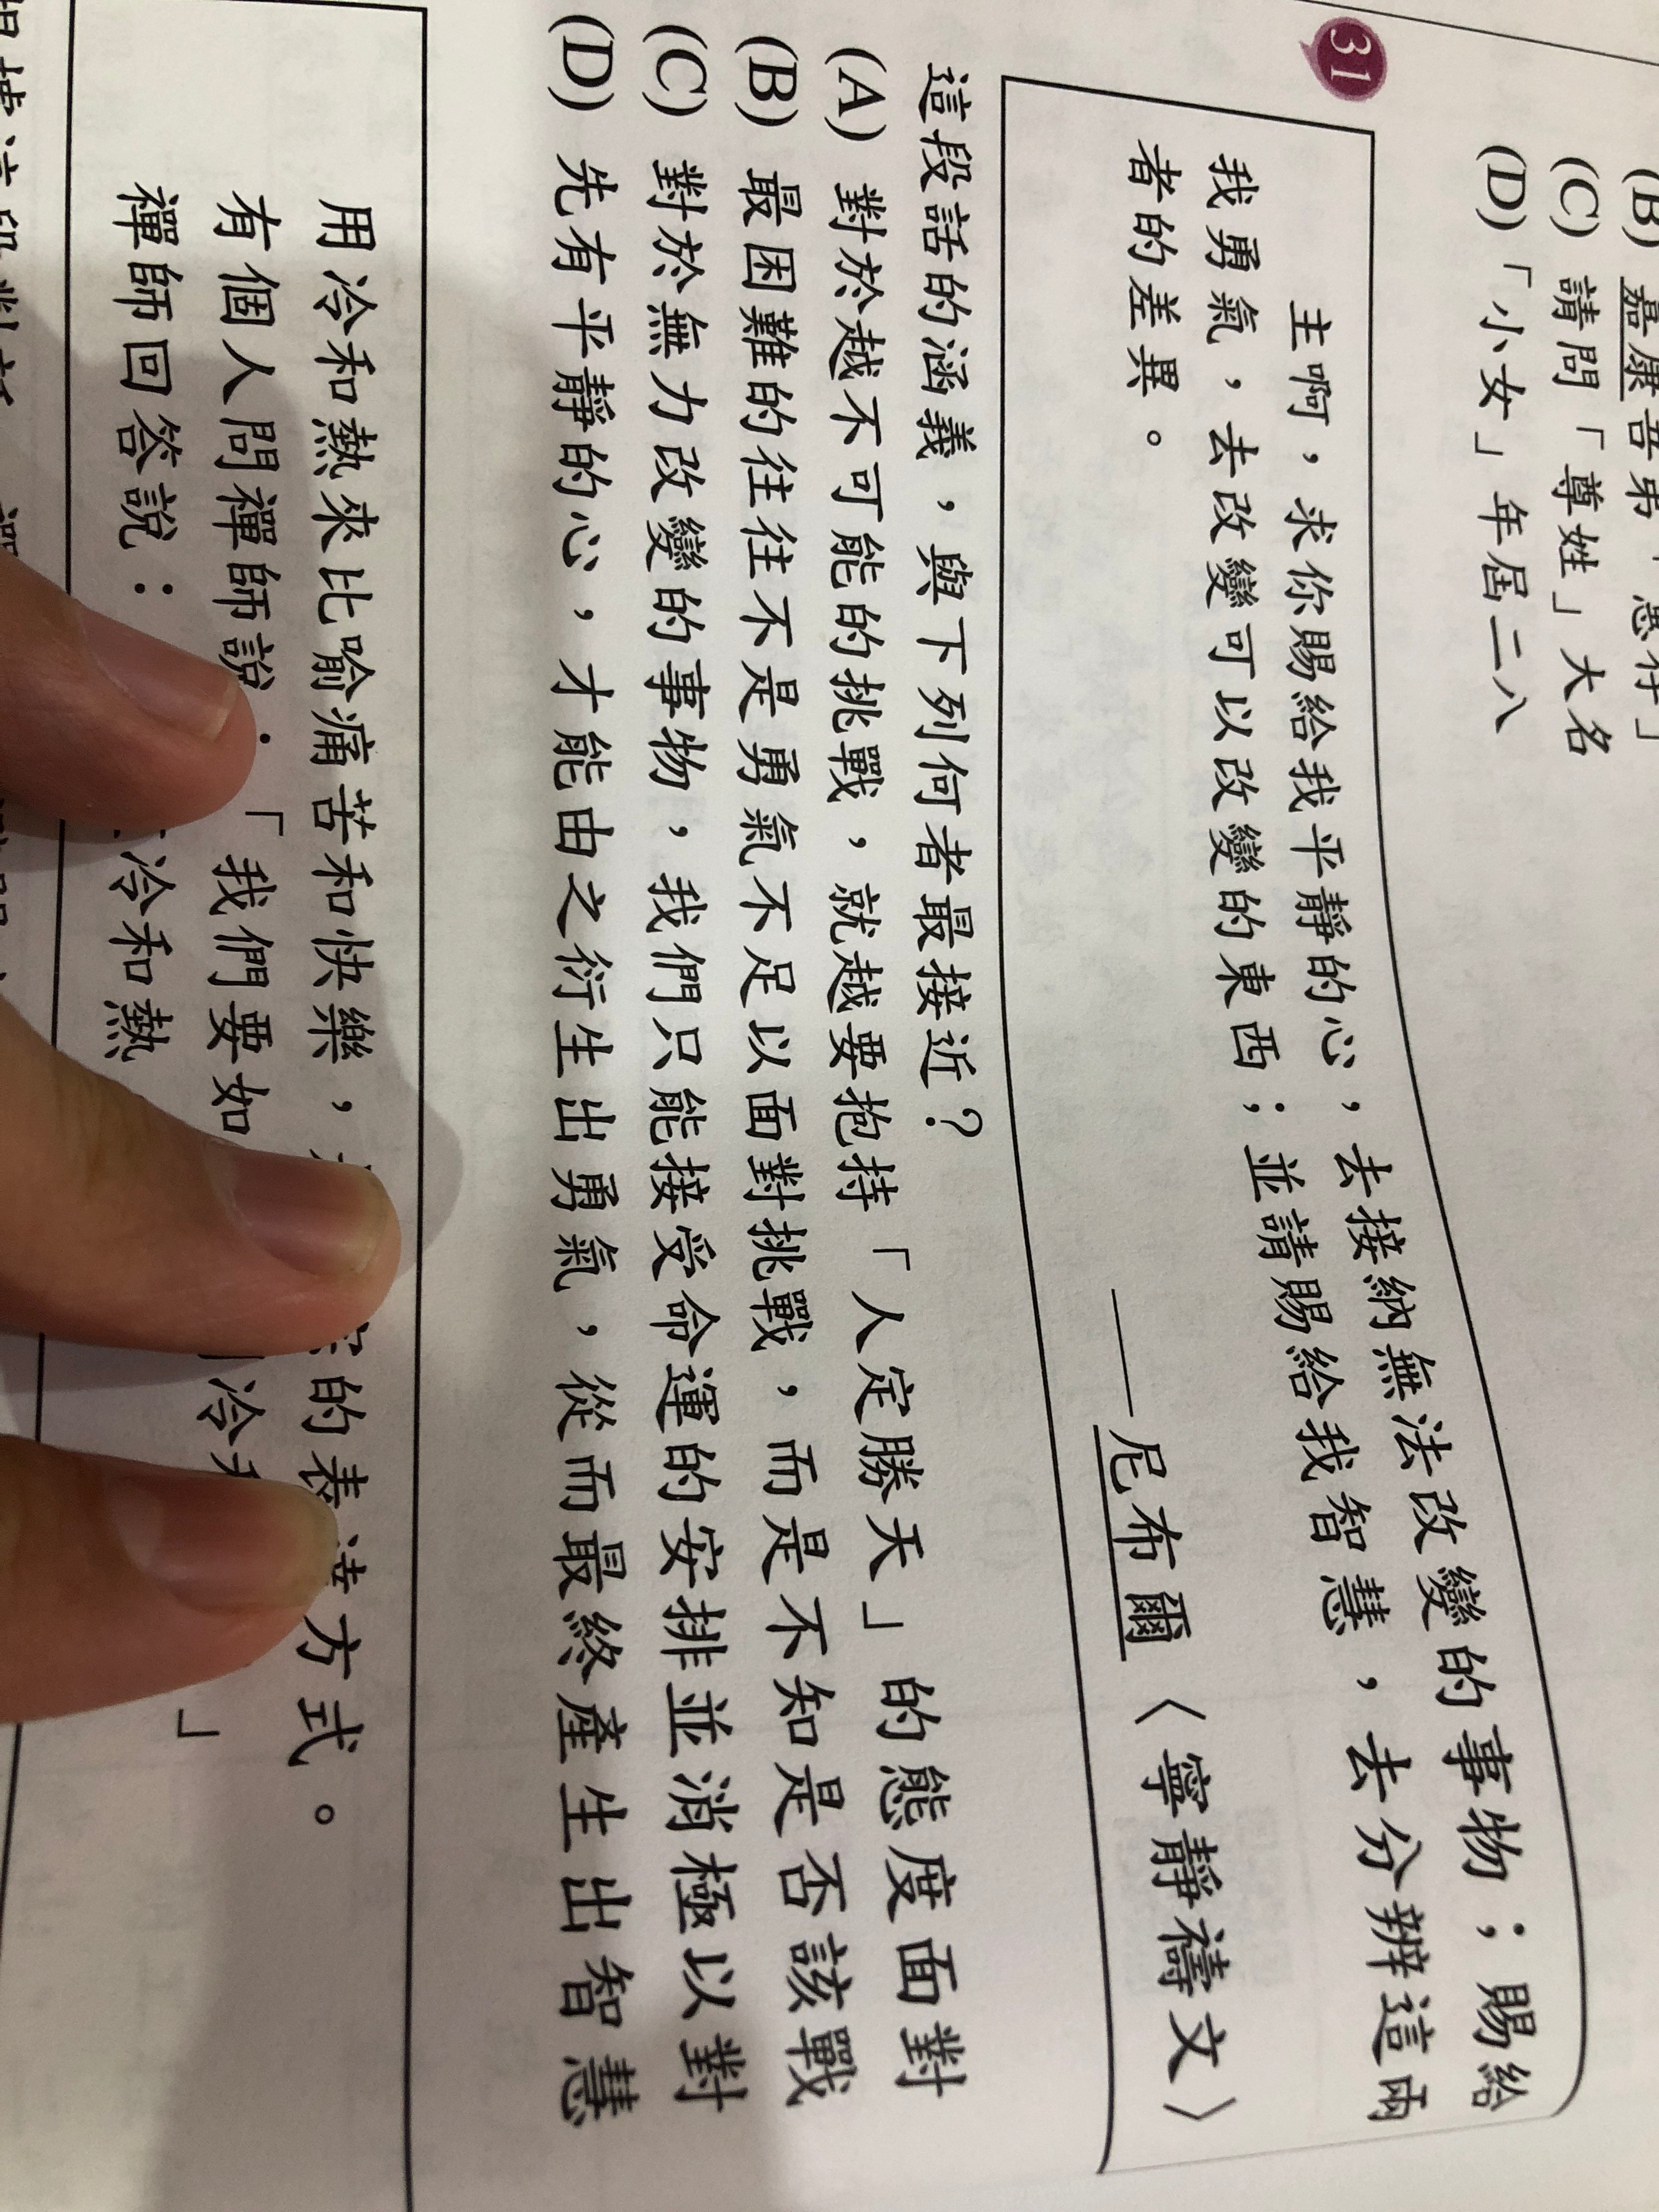 (B) 嘉康吾弟「惠存」
(C) 請問「尊姓」大名
(D)「小女」年屆二八
31
主啊，求你賜給我平靜的心，去接納無法改變的事物；賜給
我勇氣，去改變可以改變的東西；並請賜給我智慧，去分辨這兩
者的差異。
——尼布爾〈寧靜禱文〉
這段話的涵義，與下列何者最接近？
(A) 對於越不可能的挑戰，就越要抱持「人定勝天」的態度面對
(B) 最困難的往往不是勇氣不足以面對挑戰，而是不知是否該戰
(C) 對於無力改變的事物，我們只能接受命運的安排並消極以對
(D) 先有平靜的心，才能由之衍生出勇氣，從而最終產生出智慧
用冷和熱來比喻痛苦和快樂，
的表達方式。
有個人問禪師說：「我們要如
冷
」
禪師回答說：
冷和熱